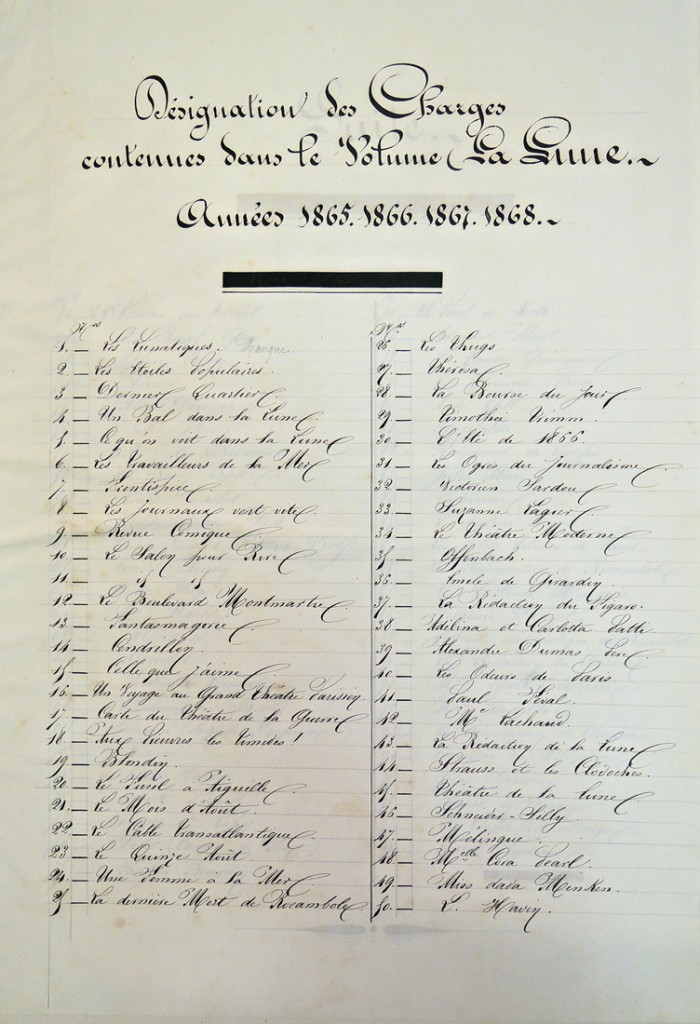 Désignation des Charges
contenues dans le Volume La Lune.
Années 1865. 1866. 1867. 1868.
Nos
1. — Les Lunatiques. Manque
2. — Les Etoiles Populaires.
3 — Dernier Quartier
4. — Un Bal dans la Lune.
5 — Ce qu'on voit dans la Lune
6. — Les Travailleurs de la Mer
7 — Frontispice
8 — Les journaux vont vite
9. — Revue Comique
10. — Le Salon pour Rire
11. — " "
12. — Le Boulevard Montmartre.
13. — Fantasmagorie
14 — Cendrillon.
15 — Celle que j'aime
16 — Un Voyage au Grand Théâtre Parisien.
17. — Carte du Théâtre de la Guerre
18. — Aux lièvres les timides !
19. — Blondin.
20 — Le Fusil à Aiguille
21. — Le Mois d'Août.
22 — Le Câble Transatlantique
23 — Le Quinze Août.
24. — Une Femme à la Mer
25. — La dernière Mort de Rocambole
Nos
26. — Les Thugs
27. — Thérésa
28. — La Bourse du Jour
29. — Timothée Trimm.
30 — L'Eté de 1866.
31. — Les Ogres du Journalisme
32 — Victorien Sardou
33. — Suzanne Lagier
34 — Le Théâtre Moderne
35. — Offenbach.
36. — Emile de Girardin.
37. — La Rédaction du Figaro.
38 — Adélina et Carlotta Patti.
39 — Alexandre Dumas Père.
40 — Les Odeurs de Paris
41. — Paul Féval.
42. — Mr Lachaud.
43. — La Rédaction de la Lune
44. — Strauss et les Clodoches.
45. — Théâtre de la lune
46 — Schneider-Silly.
47. — Mélingue.
48. — Melle Cora Pearl.
49. — Miss dada Menken.
50. — L. Havin.